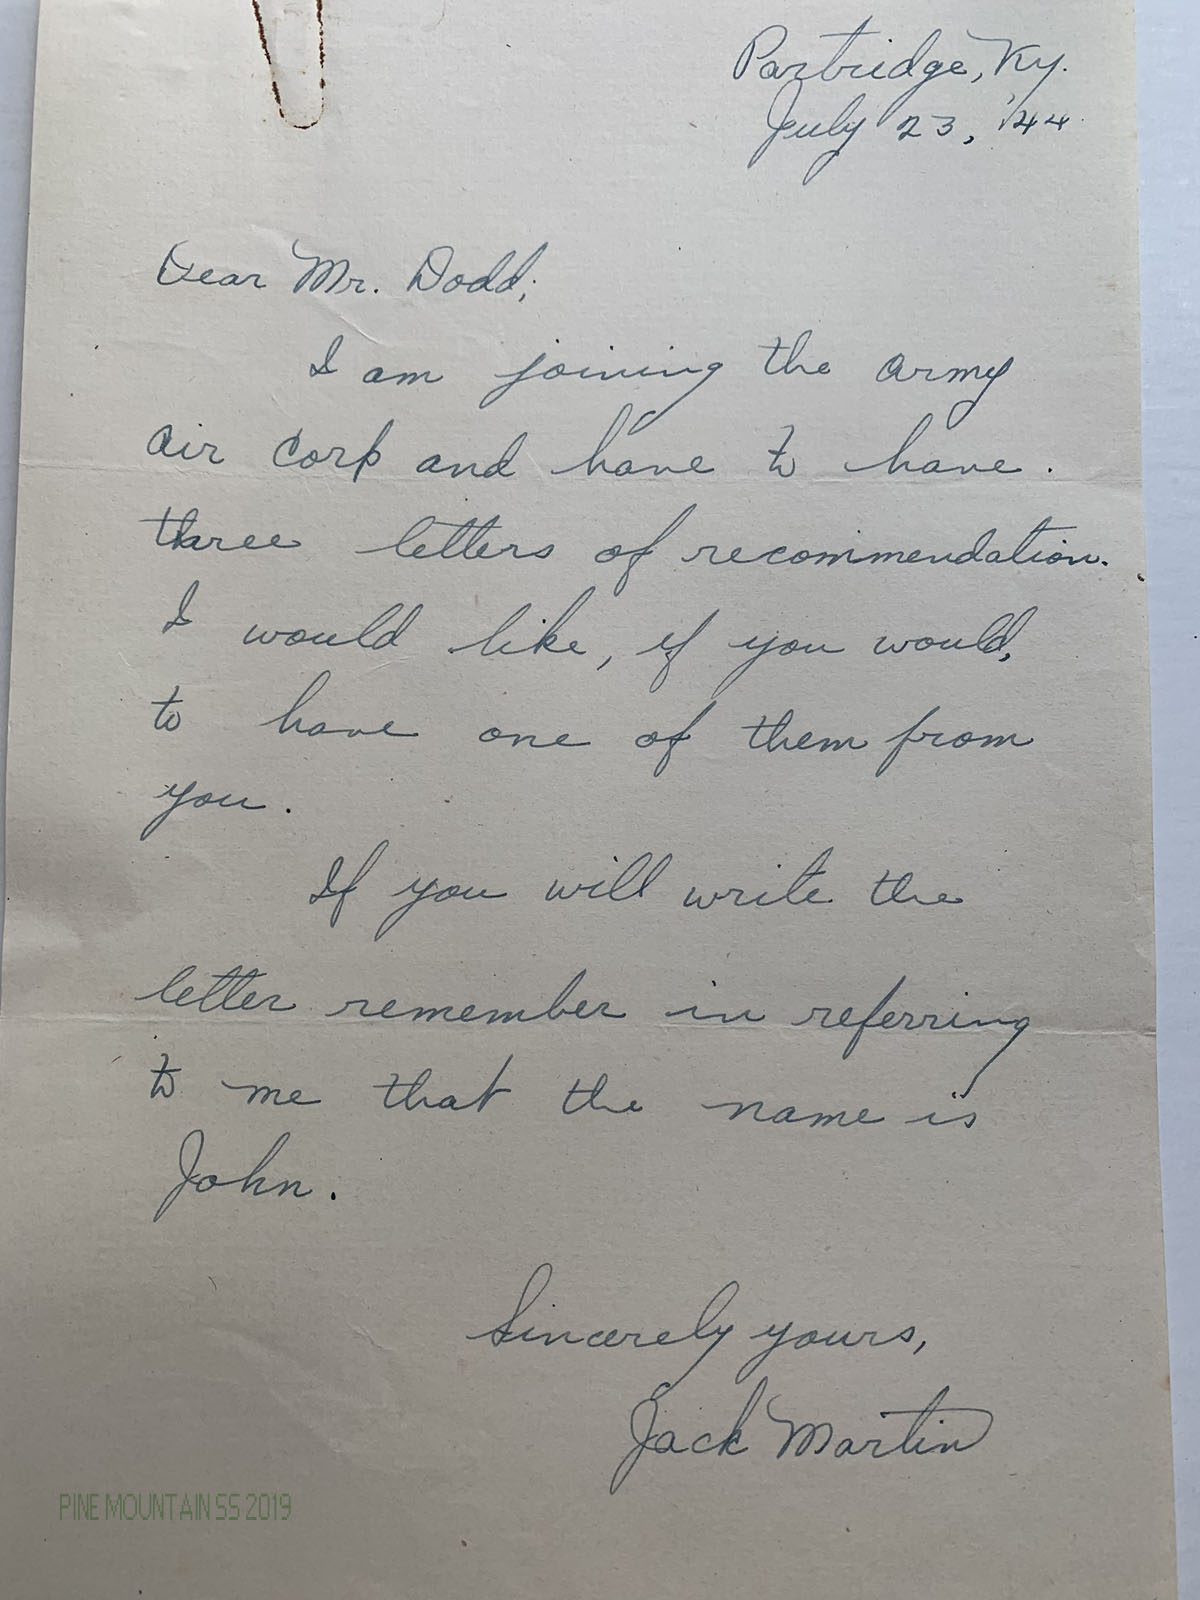 Partridge, Ky.
July 23, '44
Dear Mr. Dodd;
I am joining the army
air corp and have to have.
three letters of recommendation.
I would like, if you would,
to have one of them from
you.
If you will write the
letter remember in referring
to me that the name is
John.
Sincerely yours,
Jack Martin
PINE MOUNTAIN SS 2019